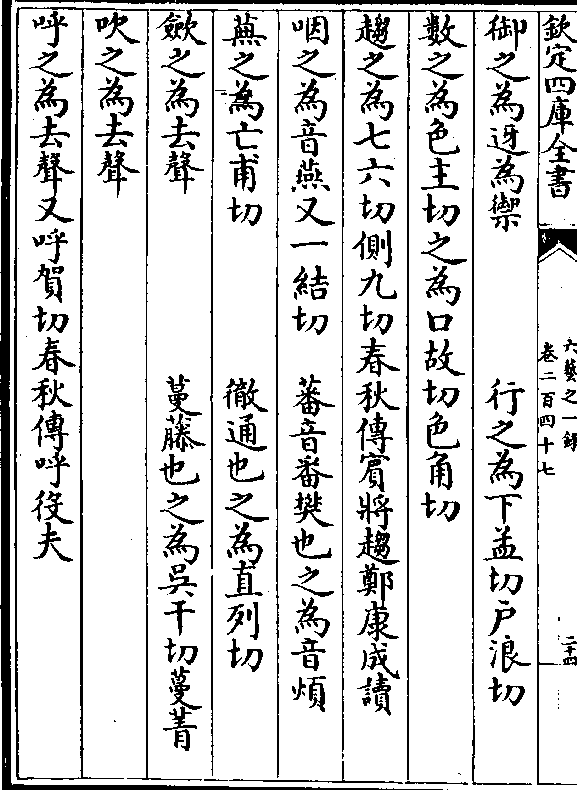 欽定四庫全書
六藝之一錄
卷二百四十七
二十四
御之為迓為禦　行之為下孟切戶浪切
數之為色主切之為口故切色角切
趨之為七六切側九切春秋傳賓將趨鄭康成讀
咽之為音燕又一結切　蕃音畨樊也之為音煩
蕪之為亡甫切　徹通也之為直列切
歛之為去聲　蔓藤也之為吳干切蔓菁
吹之為去聲
呼之為去聲又呼賀切春秋傳呼役夫